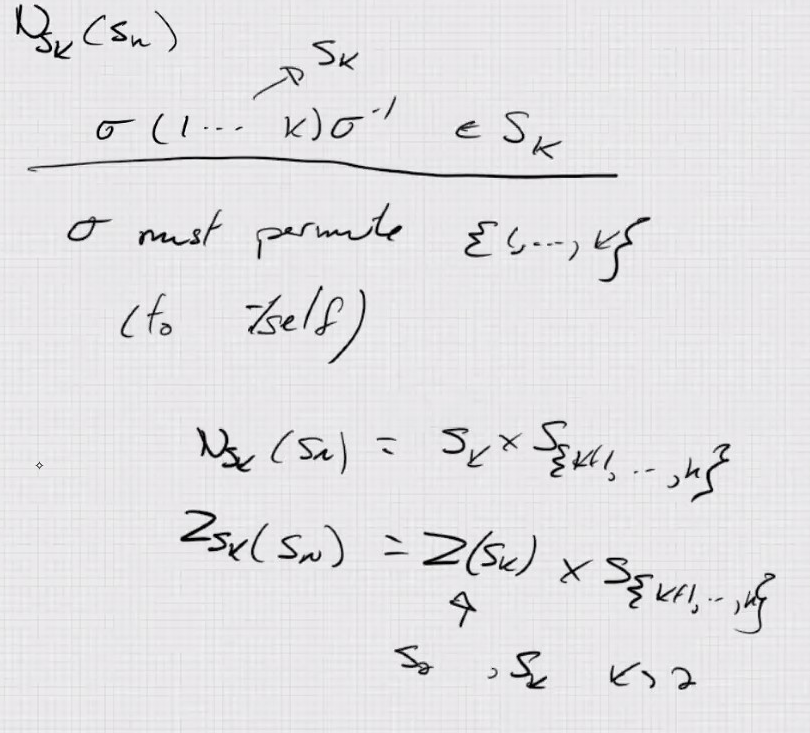 N_{S_K}(S_n)
S_K
σ (1 ... K) σ^{-1} ∈ S_K
σ must permute {1, ..., K}
(to itself)
N_{S_K}(S_n) = S_K × S_{{K+1, ..., n}}
Z_{S_K}(S_n) = Z(S_K) × S_{{K+1, ..., n}}
S_2 , S_K K > 2